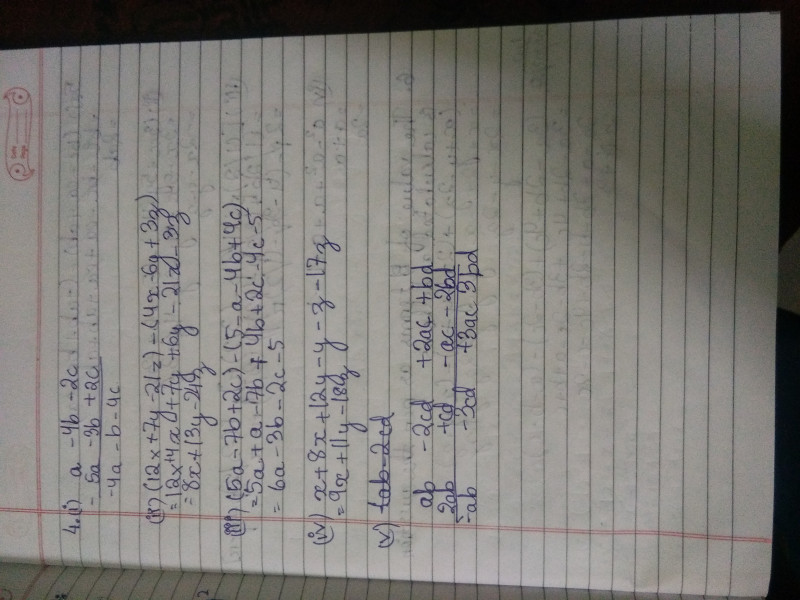 4.(i) a -4b -2c
- 5a -3b +2c
-4a -b -4c
(ii) (12x+7y-21z)-(4x-6y+3z)
=12x-4x+7y+6y-21z-3z
=8x+13y-24z
(iii) (5a-7b+2c)-(5-a-4b+4c)
=5a+a-7b+4b+2c-4c-5
=6a-3b-2c-5
(iv) x+8x+12y-y-z-17z
=9x+11y-18z
(v)
ab -2cd +2ac +bd
2ab +cd -ac -2bd
-ab -3cd +3ac 3bd